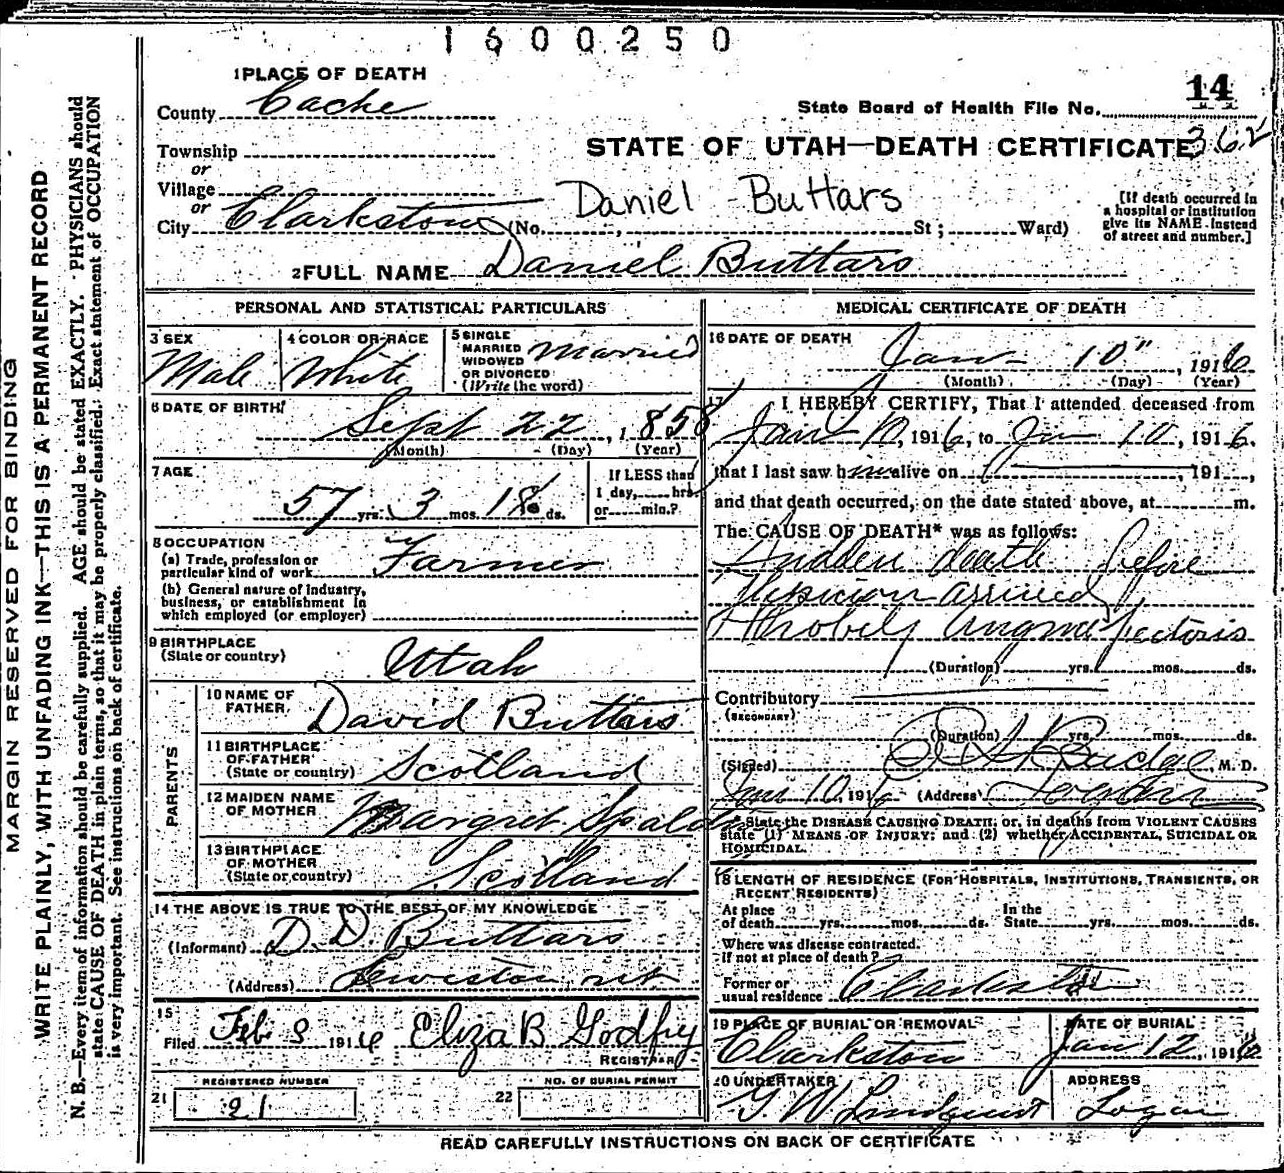 1600250
1 PLACE OF DEATH
14
County Cache
State Board of Health File No.
Township
or
STATE OF UTAH—DEATH CERTIFICATE 362
Village
or
Daniel Buttars
City Clarkston (No. , St; Ward)
[If death occurred in
a hospital or institution
give its NAME instead
of street and number.]
2 FULL NAME Daniel Buttars
PERSONAL AND STATISTICAL PARTICULARS
3 SEX
Male
4 COLOR OR RACE
White
5 SINGLE
MARRIED
WIDOWED
OR DIVORCED
(Write the word)
Married
6 DATE OF BIRTH
Sept 22, 1858
(Month) (Day) (Year)
7 AGE
57 yrs. 3 mos. 18 ds.
If LESS than
1 day, hrs.
or min.?
8 OCCUPATION
(a) Trade, profession or
particular kind of work Farmer
(b) General nature of industry,
business, or establishment in
which employed (or employer)
9 BIRTHPLACE
(State or country) Utah
PARENTS
10 NAME OF
FATHER David Buttars
11 BIRTHPLACE
OF FATHER
(State or country) Scotland
12 MAIDEN NAME
OF MOTHER Margret
13 BIRTHPLACE
OF MOTHER
(State or country) Scotland
14 THE ABOVE IS TRUE TO THE BEST OF MY KNOWLEDGE
(Informant) D. D. Buttars
(Address) Lewiston ut
15
Filed Feb 8 1916 Eliza B Godfrey
REGISTRAR
REGISTERED NUMBER
21 21
NO. OF BURIAL PERMIT
22
MEDICAL CERTIFICATE OF DEATH
16 DATE OF DEATH
Jan 10", 1916
(Month) (Day) (Year)
17 I HEREBY CERTIFY, That I attended deceased from
Jan 10, 1916, to Jan 10, 1916.
that I last saw him alive on 191 ,
and that death occurred, on the date stated above, at m.
The CAUSE OF DEATH* was as follows:
Sudden death before
Physician arrived
Probely Angina pectoris
(Duration) yrs. mos. ds.
Contributory
(SECONDARY)
(Duration) yrs. mos. ds.
(Signed) Budge, M. D.
Jan 10, 1916 (Address) Logan
*State the DISEASE CAUSING DEATH, or, in deaths from VIOLENT CAUSES
state (1) MEANS OF INJURY; and (2) whether ACCIDENTAL, SUICIDAL OR
HOMICIDAL.
18 LENGTH OF RESIDENCE (FOR HOSPITALS, INSTITUTIONS, TRANSIENTS, OR
RECENT RESIDENTS)
At place In the
of death yrs. mos. ds. State yrs. mos. ds.
Where was disease contracted
if not at place of death?
Former or
usual residence Clarkston
19 PLACE OF BURIAL OR REMOVAL
Clarkston
DATE OF BURIAL
Jan 12, 1916
20 UNDERTAKER
G W Lindquist
ADDRESS
Logan
READ CAREFULLY INSTRUCTIONS ON BACK OF CERTIFICATE
MARGIN RESERVED FOR BINDING
WRITE PLAINLY, WITH UNFADING INK—THIS IS A PERMANENT RECORD
N. B.—Every item of information should be carefully supplied. AGE should be stated EXACTLY. PHYSICIANS should
state CAUSE OF DEATH in plain terms, so that it may be properly classified. Exact statement of OCCUPATION
is very important. See instructions on back of certificate.